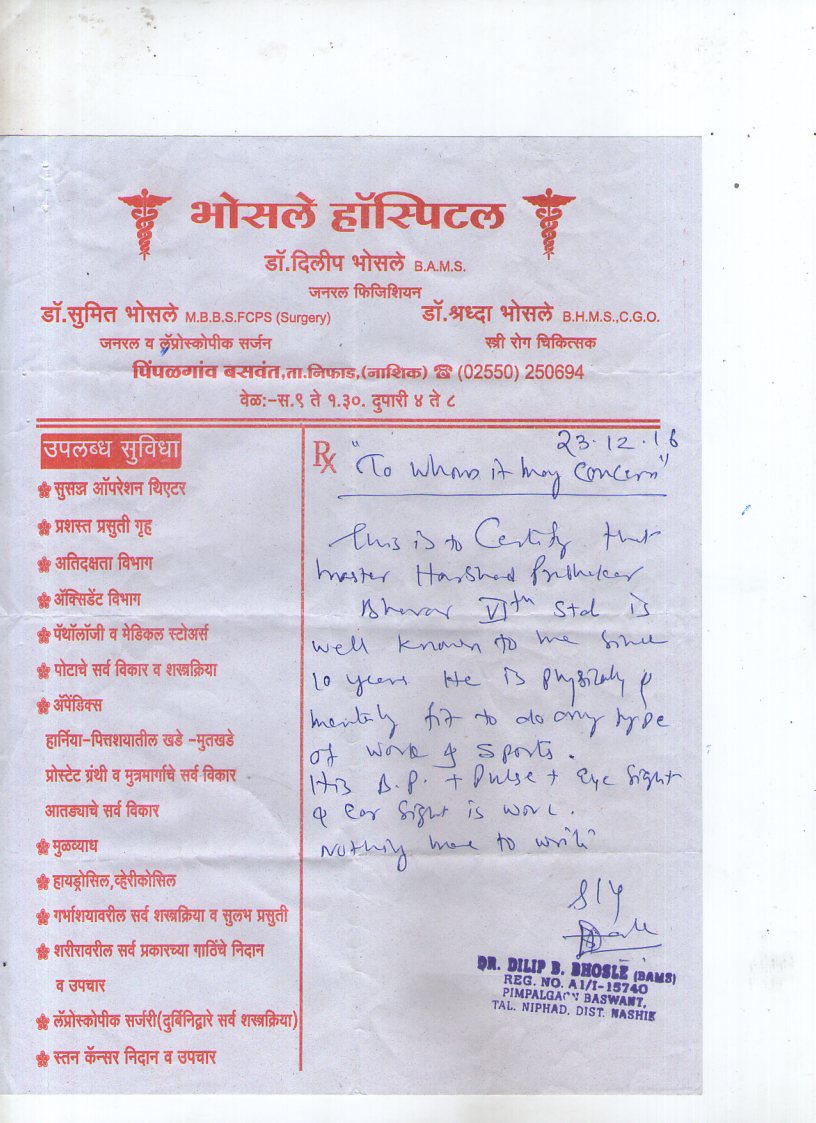 भोसले हॉस्पिटल
डॉ.दिलीप भोसले B.A.M.S.
जनरल फिजिशियन
डॉ.सुमित भोसले M.B.B.S.FCPS (Surgery)
जनरल व लॅप्रोस्कोपीक सर्जन
डॉ.श्रध्दा भोसले B.H.M.S.,C.G.O.
स्त्री रोग चिकित्सक
पिंपळगांव बसवंत,ता.निफाड,(नाशिक) ☎ (02550) 250694
वेळ:-स.९ ते १.३०. दुपारी ४ ते ८
उपलब्ध सुविधा
सुसज्ज ऑपरेशन थिएटर
प्रशस्त प्रसुती गृह
अतिदक्षता विभाग
ॲक्सिडेंट विभाग
पॅथॉलॉजी व मेडिकल स्टोअर्स
पोटाचे सर्व विकार व शस्त्रक्रिया
ॲपेंडिक्स
हार्निया-पित्तशयातील खडे -मुतखडे
प्रोस्टेट ग्रंथी व मुत्रमार्गाचे सर्व विकार
आतड्याचे सर्व विकार
मुळव्याध
हायड्रोसिल,व्हेरीकोसिल
गर्भाशयावरील सर्व शस्त्रक्रिया व सुलभ प्रसुती
शरीरावरील सर्व प्रकारच्या गाठिंचे निदान
व उपचार
लॅप्रोस्कोपीक सर्जरी(दुर्बिनिद्वारे सर्व शस्त्रक्रिया)
स्तन कॅन्सर निदान व उपचार
Rx
23.12.16
"To whom it may concern"
This is to Certify that
master Harshad
VIth Std is
well known to me since
10 years He is physicaly &
mentaly fit to do any type
of work & sports.
His B.P. + Pulse + Eye Sight
& Ear Sight is
Nothing more to write
DR. DILIP B. BHOSLE (BAMS)
REG. NO. A1/I-15740
PIMPALGAON BASWANT,
TAL. NIPHAD, DIST. NASHIK